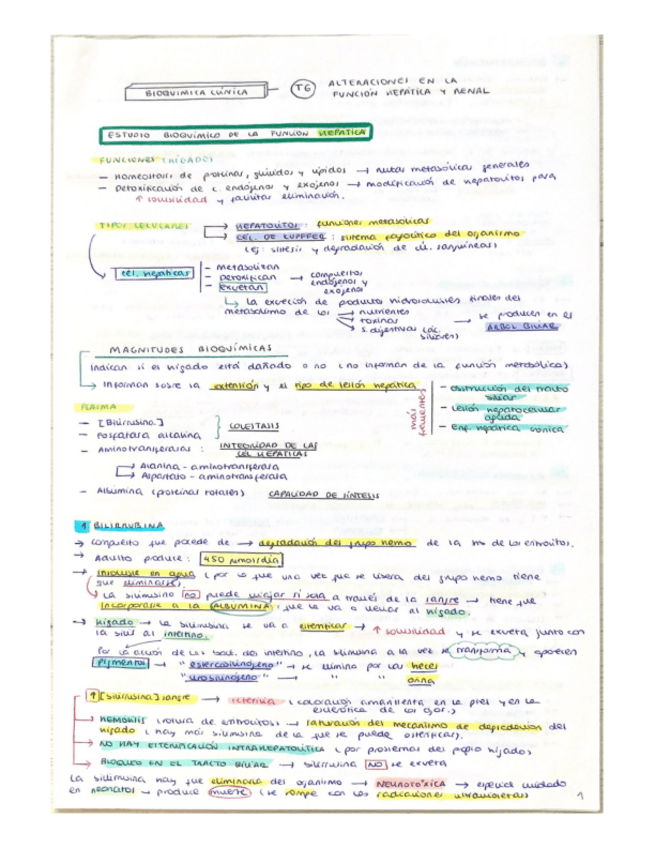 BIOQUIMICA CLÍNICA
T6
ALTERACIONES EN LA
FUNCIÓN HEPÁTICA Y RENAL
ESTUDIO BIOQUÍMICO DE LA FUNCIÓN HEPÁTICA
FUNCIONES (HÍGADO)
- Homeostasis de proteínas, glúcidos y lípidos → rutas metabólicas generales
- Detoxificación de c. endógenos y exógenos → modificación de hepatocitos para
↑ solubilidad y facilitar eliminación.
TIPOS CELULARES
→ HEPATOCITOS: funciones metabólicas
→ CÉL. DE KUPFFER: sistema fagocítico del organismo
(ej: síntesis y degradación de cél. sanguíneas)
cél. hepáticas
- Metabolizan
- Detoxifican → compuestos
endógenos y
exógenos
- Excretan
↳ La excreción de productos hidrosolubles finales del
metabolismo de los → nutrientes
→ toxinas
→ s. digestivas (ác.
biliares)
→ se producen en el
ÁRBOL BILIAR
MAGNITUDES BIOQUÍMICAS
Indican si el hígado está dañado o no (no informan de la función metabólica)
→ Informan sobre la extensión y el tipo de lesión hepática
más
frecuentes
- Obstrucción del tracto
biliar
- Lesión hepatocelular
aguda
- Enf. hepática crónica
PLASMA
- [Bilirrubina]
- Fosfatasa alcalina
COLESTASIS
- Aminotransferasas: INTEGRIDAD DE LAS
CÉL HEPÁTICAS
→ Alanina-aminotransferasa
→ Aspartato-aminotransferasa
- Albúmina (proteínas totales) CAPACIDAD DE SÍNTESIS
↑ BILIRRUBINA
→ Compuesto que procede de → degradación del grupo hemo de la Hb de los eritrocitos.
→ Adulto produce: 450 µmol/día
→ Insoluble en agua (por lo que una vez que se libera del grupo hemo tiene
que eliminarse)
↳ La bilirrubina no puede viajar ella sola a través de la sangre → tiene que
incorporarse a la ALBÚMINA: que la va a llevar al hígado.
→ Hígado → La bilirrubina se va a esterificar → ↑ solubilidad y se excreta junto con
la bilis al intestino.
Por la acción de las bact. del intestino, la bilirrubina a la vez se transforma y aparecen
Pigmentos → "estercobilinógeno" → se elimina por las heces
"urobilinógeno" → " " orina
↑ [Bilirrubina] sangre → Ictericia (coloración amarillenta en la piel y en la
esclerótica de los ojos.)
→ HEMÓLISIS (rotura de eritrocitos) → saturación del mecanismo de degradación del
hígado (hay más bilirrubina de la que se puede esterificar).
→ NO HAY ESTERIFICACIÓN INTRAHEPATOCÍTICA (por problemas del propio hígado)
→ BLOQUEO EN EL TRACTO BILIAR → bilirrubina NO se excreta
La bilirrubina hay que eliminarla del organismo → NEUROTÓXICA → especial cuidado
en neonatos → produce muerte (se rompe con las radiaciones ultravioletas)
1